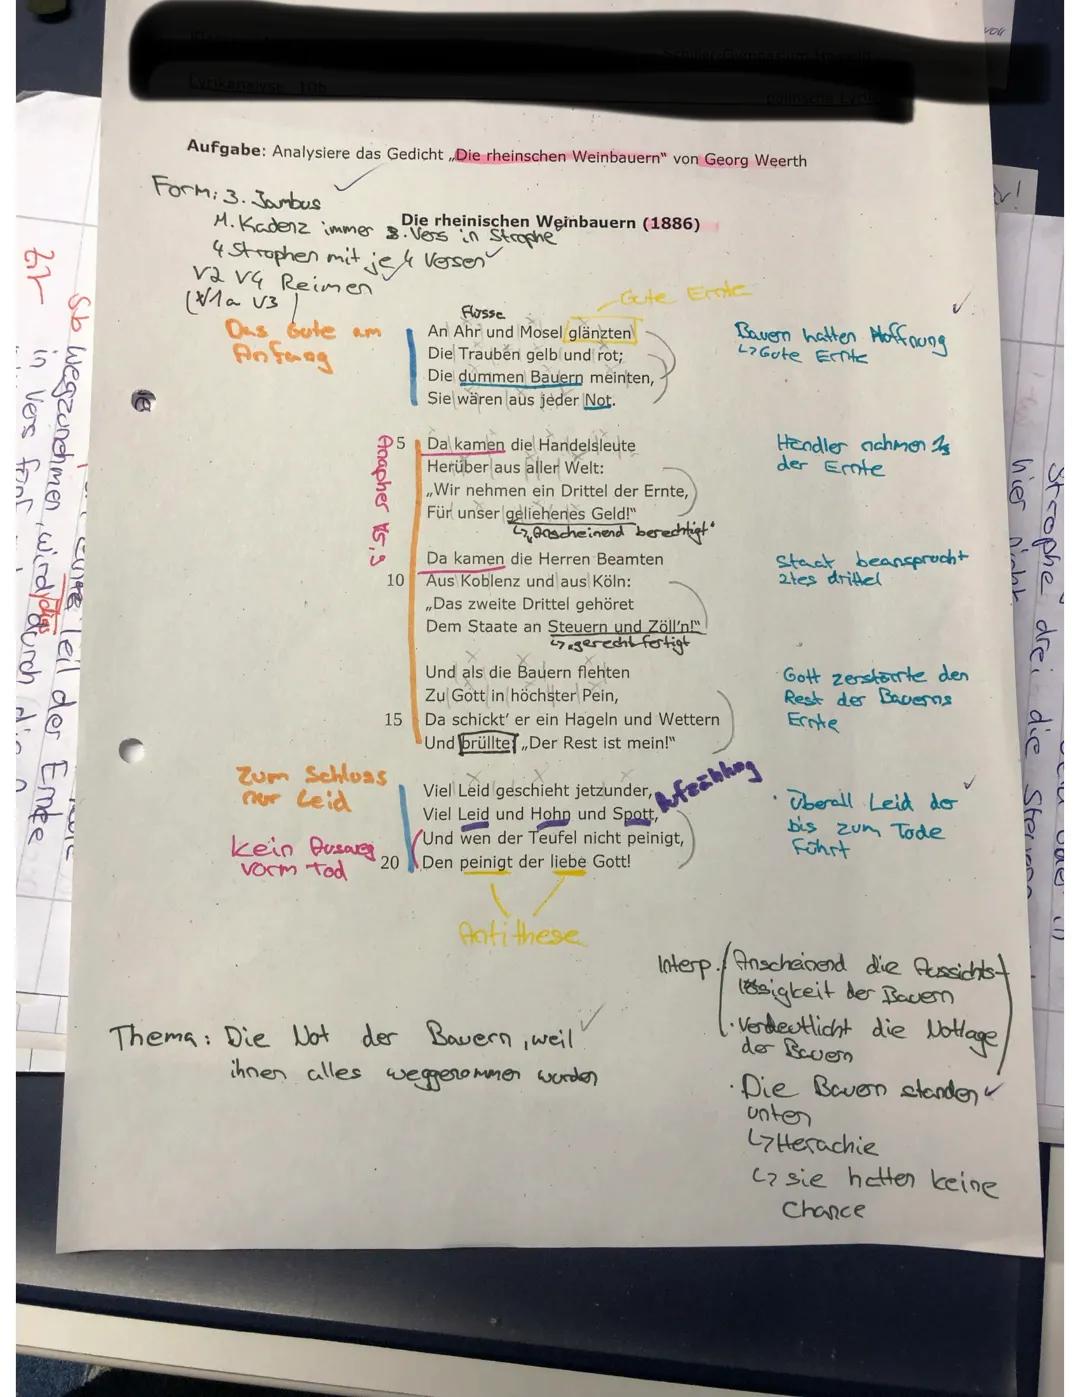 Lyrikanalyse 10b
Aufgabe: Analysiere das Gedicht „Die rheinschen Weinbauern" von Georg Weerth
Form: 3. Jambus
M. Kadenz immer 3. Vers in Strophe
4 Strophen mit je 4 Versen
V2 V4 Reimen
(V1a V3
Die rheinischen Weinbauern (1886)
Gute Ernte
Das Gute am
Anfang
Flüsse
An Ahr und Mosel glänzten
Die Trauben gelb und rot;
Die dummen Bauern meinten,
Sie wären aus jeder Not.
Bauern hatten Hoffnung
↳ Gute Ernte
Anapher V5,9
5 Da kamen die Handelsleute
Herüber aus aller Welt:
„Wir nehmen ein Drittel der Ernte,
Für unser geliehenes Geld!"
↳ „Anscheinend berechtigt"
Händler nahmen ⅓
der Ernte
Da kamen die Herren Beamten
10 Aus Koblenz und aus Köln:
„Das zweite Drittel gehöret
Dem Staate an Steuern und Zöll'n!"
↳ gerechtfertigt
Staat beansprucht
2tes drittel
Und als die Bauern flehten
Zu Gott in höchster Pein,
15 Da schickt' er ein Hageln und Wettern
Und brüllte: „Der Rest ist mein!"
Gott zerstörrte den
Rest der Bauerns
Ernte
Zum Schluss
nur Leid
Kein Ausweg
vorm Tod
Viel Leid geschieht jetzunder,
Viel Leid und Hohn und Spott,
Und wen der Teufel nicht peinigt,
20 Den peinigt der liebe Gott!
Aufzählung
· überall Leid der
bis zum Tode
führt
Antithese
Interp. Anscheinend die Aussichts-
lösigkeit der Bauern
· Verdeutlicht die Notlage
der Bauern
· Die Bauern standen
unten
↳ Herachie
↳ sie hatten keine
Chance
Thema: Die Not der Bauern, weil
ihnen alles weggenommen wurden
wegzunehmen, wird
Teil der Ernte
in Vers fünf
durch die
Strophe drei die Steuern
hier nicht